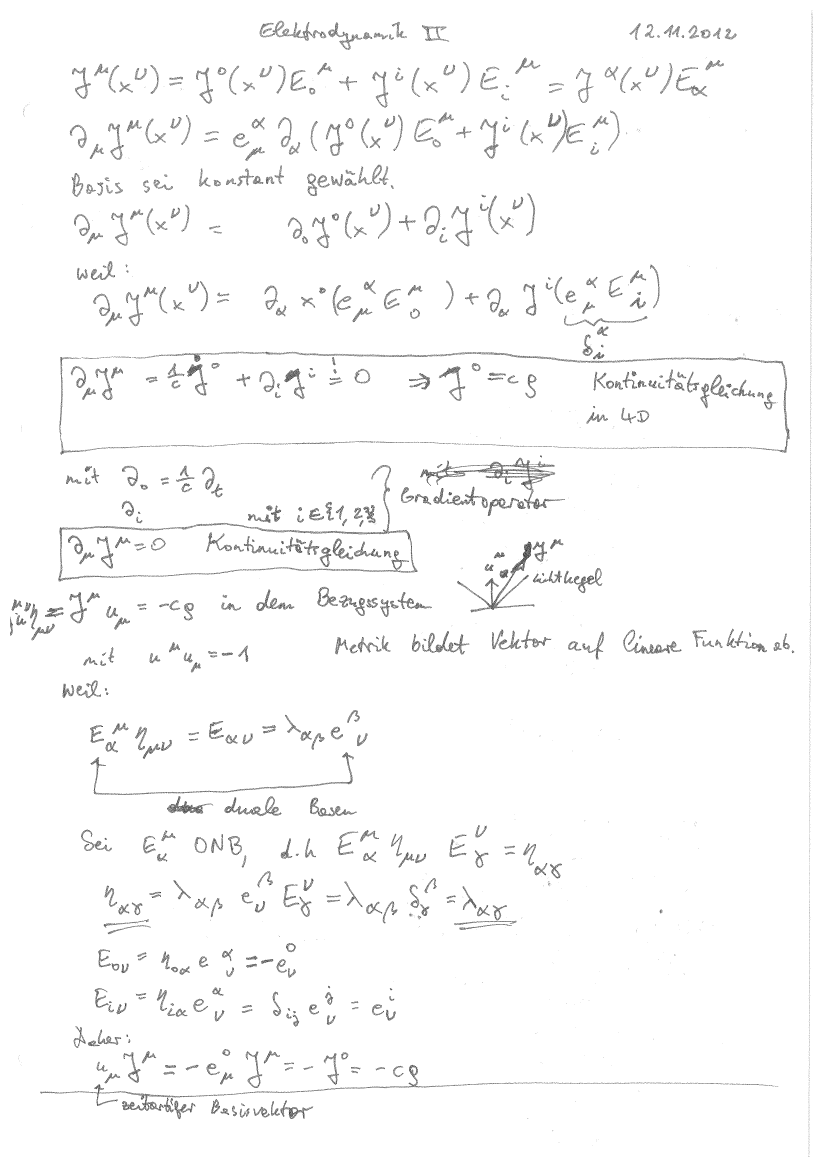 Elektrodynamik II 12.11.2012
J^μ(x^ν) = J^0(x^ν)E_0^μ + J^i(x^ν) E_i^μ = J^α(x^ν)E_α^μ
∂_μ J^μ(x^ν) = e_μ^α ∂_α (J^0(x^ν) E_0^μ + J^i(x^ν)E_i^μ)
Basis sei konstant gewählt.
∂_μ J^μ(x^ν) = ∂_0 J^0(x^ν) + ∂_i J^i(x^ν)
weil:
∂_μ J^μ(x^ν) = ∂_α x^0(e_μ^α E_0^μ) + ∂_α J^i(e_μ^α E_i^μ)
δ_i^α
∂_μ J^μ = 1/c J̇^0 + ∂_i J^i =! 0 ⇒ J^0 = cρ Kontinuitätsgleichung
in 4D
mit ∂_0 = 1/c ∂_t
∂_i mit i∈{1,2,3} Gradientoperator
∂_μ J^μ = 0 Kontinuitätsgleichung
J^μ
u^μ
Lichtkegel
j^μ u^ν η_μν = J^μ u_μ = -cρ in dem Bezugssystem
mit u^μ u_μ = -1 Metrik bildet Vektor auf lineare Funktion ab.
weil:
E_α^μ η_μν = E_αν = λ_αβ e^β_ν
duale Basen
Sei E_α^μ ONB, d.h E_α^μ η_μν E_γ^ν = η_αγ
η_αγ = λ_αβ e_ν^β E_γ^ν = λ_αβ δ_γ^β = λ_αγ
E_0ν = η_0α e^α_ν = -e_ν^0
E_iν = η_iα e_ν^α = δ_ij e_ν^j = e_ν^i
Daher:
u_μ J^μ = -e_μ^0 J^μ = -J^0 = -cρ
zeitartiger Basisvektor